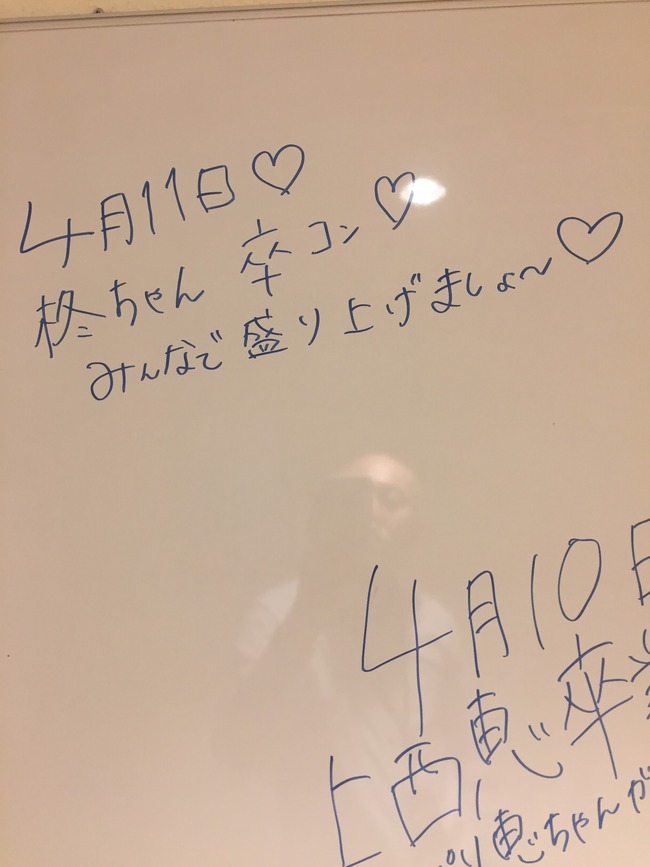 4月11日♡
柊ちゃん 卒コン♡
みんなで盛り上げましょ〜♡
4月10日
上西恵卒業
恵ちゃんが